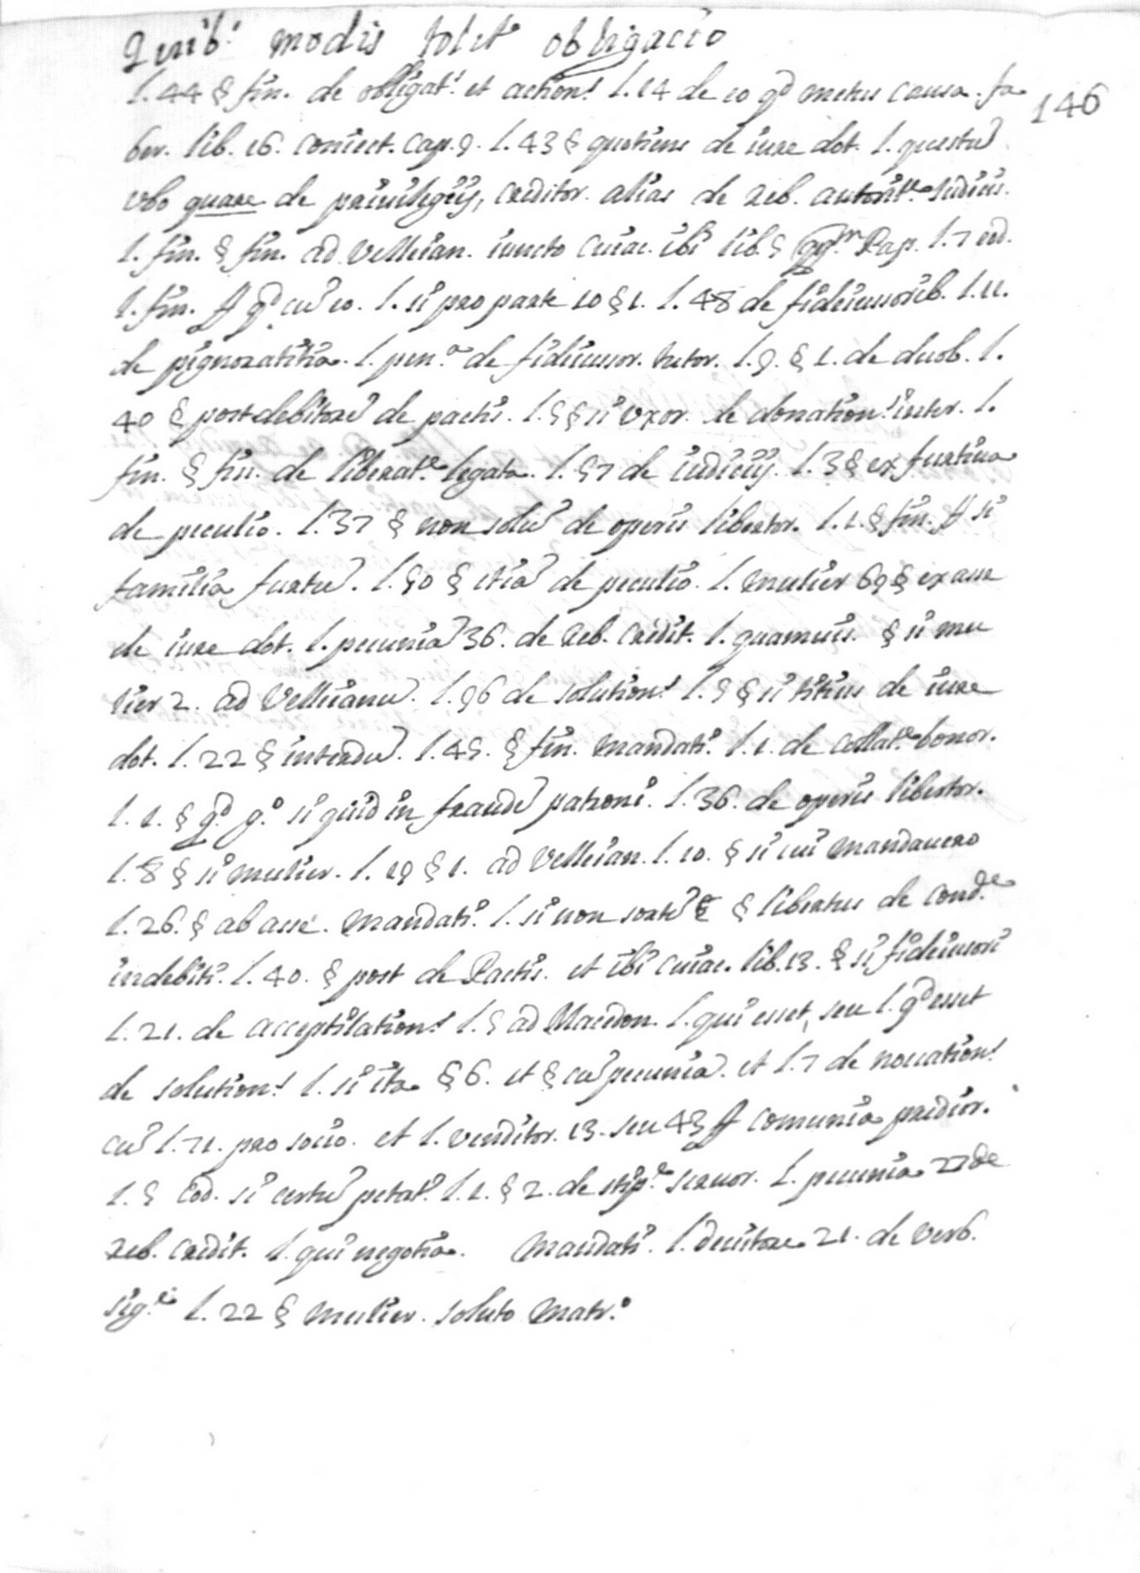 Quib.s modis tolit.r obligacio
l. 44 § fin. de obligat.s et action.s l. 14 de eo qd metus causa. fa-
146
ber. lib. 16. coniect. cap. 9. l. 43 § quotiens de iure dot. l. questu
vbo quare de priuilegijs, creditor. alias de reb. autorit.e Judicis.
l. fin. § fin. ad Velleian. iuncto cuiac. ibi lib. 5 Pap. l. 7 eod.
l. fin. ff qd cu eo. l. si pro parte 10 § 1. l. 48 de fideiussorib. l. 11.
de pignoratitia. l. pen.a de fideiussor. tutor. l. 9. § 1. de duob. l.
40 § post debitore de pactis. l. 5 § si vxor. de donation.s inter. l.
fin. § fin. de liberat.e legata. l. 57 de iudicijs. l. 3 § ex furtiua
de peculio. l. 37 § non solu de operis libertor. l. 1. § fin. ff si
familia furtu. l. 50 § etia de peculio. l. mulier 69 § ex asse
de iure dot. l. pecunia 36. de reb. credit. l. quamuis. § si mu
lier 2. ad Velleianu. l. 96 de solution.s l. 5 § si titius de iure
dot. l. 22 § interdu. l. 45. § fin. mandati. l. 1. de collat.e bonor.
l. 1. § qd g.o si quid in fraude patroni. l. 36. de operis libertor.
l. 8 § si mulier. l. 19 § 1. ad Velleian. l. 10. § si cui mandauero
l. 26. § ab asse. mandati. l. si non sorte § libertus de cond.e
indebiti. l. 40. § post de Pactis. et ibi cuiac. lib. 13. § si fideiussori
l. 21. de acceptilation.s l. 5 ad Macedon. l. qui esset, seu l. qd esset
de solution.s l. si ita § 6. et § cu pecunia. et l. 7 de nouation.s
cu l. 71. pro socio. et l. venditor. 13. seu 43 ff comunia predior.
l. 5 Cod. si certu petat.r l. 1. § 2. de stip.e seruor. l. pecunia 27 de
reb. credit. l. qui negotia. Mandati. l. decutore 21. de verb.
sig.e l. 22 § mulier. soluto matr.o